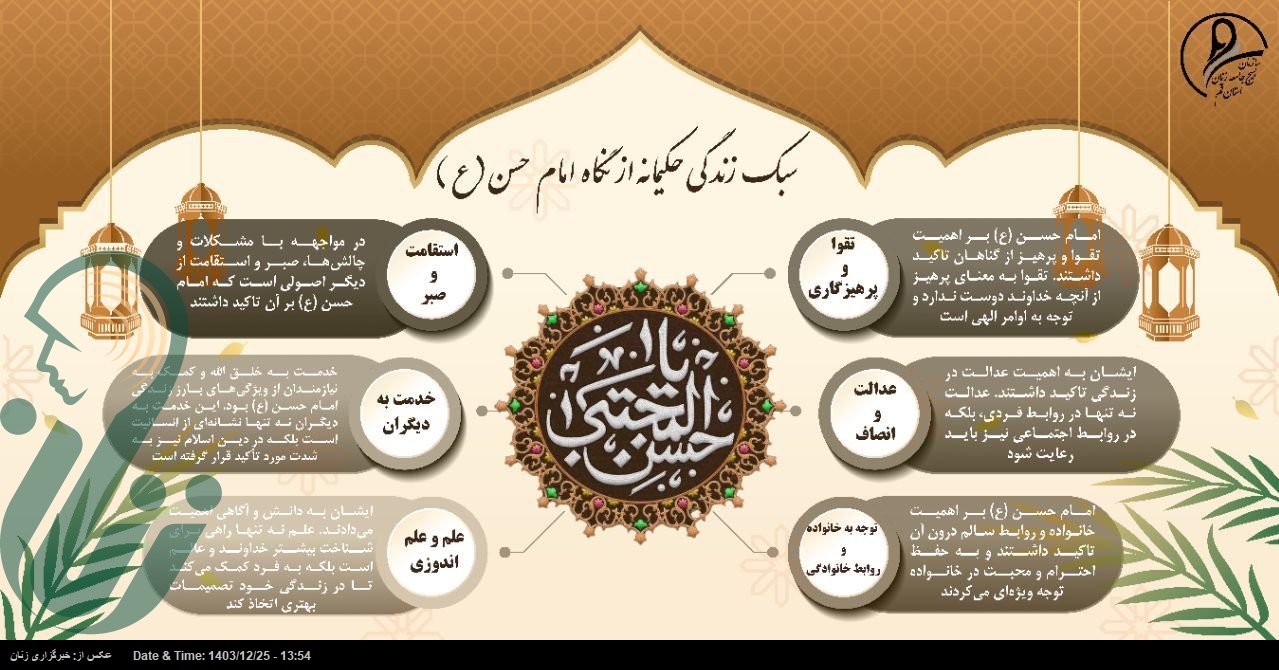 سازمان
بسیج جامعه زنان
استان قم
سبک زندگی حکیمانه از نگاه امام حسن (ع)
تقوا
و
پرهیزگاری
امام حسن (ع) بر اهمیت
تقوا و پرهیز از گناهان تاکید
داشتند. تقوا به معنای پرهیز
از آنچه خداوند دوست ندارد و
توجه به اوامر الهی است
استقامت
و
صبر
در مواجهه با مشکلات و
چالش‌ها، صبر و استقامت از
دیگر اصولی است که امام
حسن (ع) بر آن تاکید داشتند
عدالت
و
انصاف
ایشان به اهمیت عدالت در
زندگی تاکید داشتند. عدالت
نه تنها در روابط فردی، بلکه
در روابط اجتماعی نیز باید
رعایت شود
خدمت به
دیگران
خدمت به خلق الله و کمک به
نیازمندان از ویژگی‌های بارز زندگی
امام حسن (ع) بود. این خدمت به
دیگران نه تنها نشانه‌ای از انسانیت
است بلکه در دین اسلام نیز به
شدت مورد تأکید قرار گرفته است
توجه به خانواده
و
روابط خانوادگی
امام حسن (ع) بر اهمیت
خانواده و روابط سالم درون آن
تاکید داشتند و به حفظ
احترام و محبت در خانواده
توجه ویژه‌ای می‌کردند
علم و علم
اندوزی
ایشان به دانش و آگاهی اهمیت
می‌دادند. علم نه تنها راهی برای
شناخت بیشتر خداوند و عالم
است بلکه به فرد کمک می‌کند
تا در زندگی خود تصمیمات
بهتری اتخاذ کند
یا حسن المجتبی
عکس از: خبرگزاری زنان
Date & Time: 1403/12/25 - 13:54